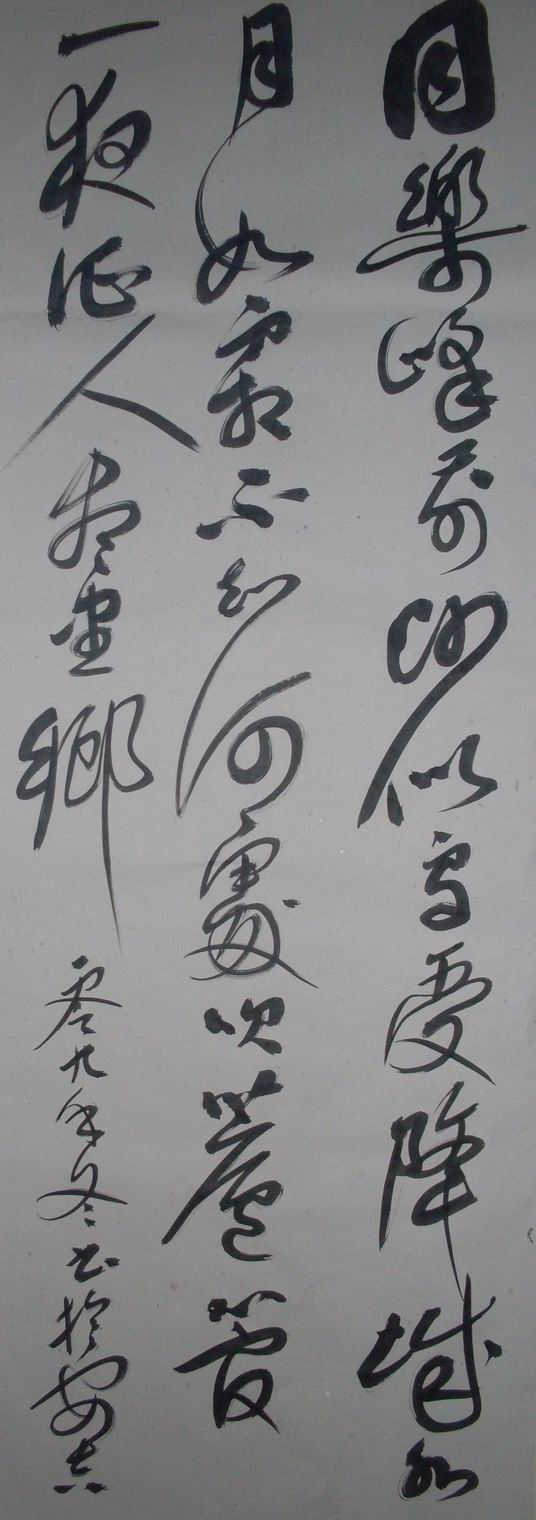 回樂峰前沙似雪受降城外
月如霜不知何處吹蘆管
一夜征人盡望鄉 零九年冬书於安吉